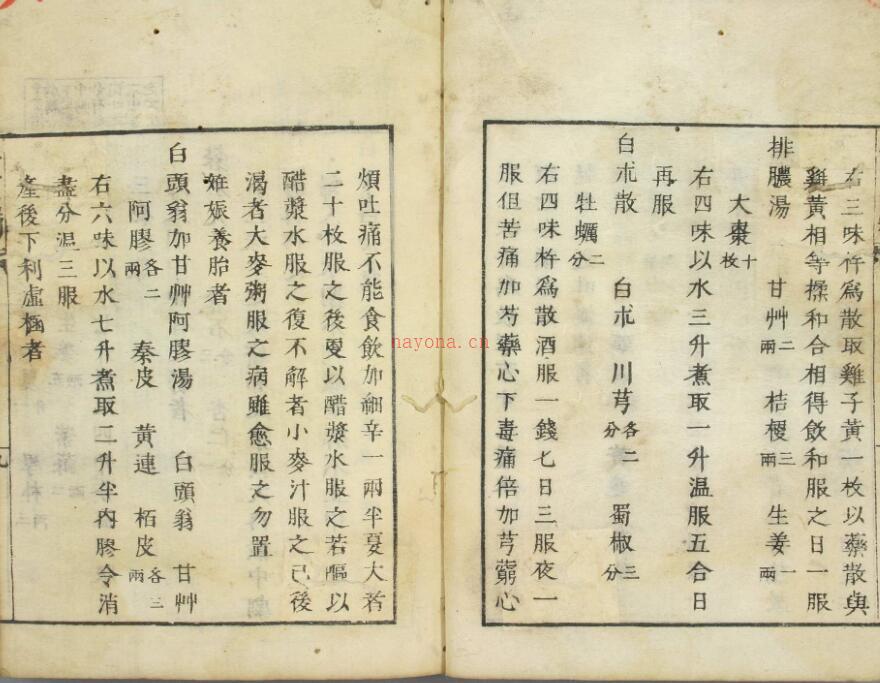 右三味杵爲散取雞子黄一枚以藥散與
雞黄相等揉和合相得飲和服之日一服
排膿湯 甘艸二兩 桔梗三兩 生姜一兩
大棗十枚
右四味以水三升煮取一升温服五合日
再服
白朮散 白朮 川芎各二分 蜀椒三分
牡蠣二分
右四味杵爲散酒服一錢七日三服夜一
服但苦痛加芍藥心下毒痛倍加芎藭心
煩吐痛不能食飲加細辛一兩半夏大者
二十枚服之後更以醋漿水服之若嘔以
醋漿水服之復不解者小麥汁服之已後
渴者大麥粥服之病雖愈服之勿置
姙娠養胎者
白頭翁加甘艸阿膠湯 白頭翁 甘艸
阿膠各二兩 秦皮 黄連 栢皮各三兩
右六味以水七升煮取二升半内膠令消
盡分温三服
產後下利虛極者
nayona.cn